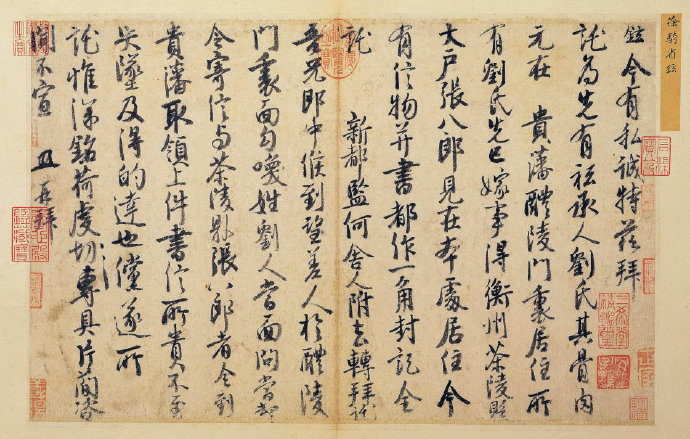 徐騎省鉉
鉉今有私誠特茲拜
託為先有祗承人劉氏其骨肉
元在 貴藩醴陵門裏居住所
有劉氏先已嫁事得衡州茶陵縣
大戶張八郎見在本處居住今
有信物并書都作一角封記全
託 新都監何舍人附去轉拜託
吾兄郎中候到望差人於醴陵
門裏面勾喚姓劉人當面問當却
令寄信与茶陵縣張八郎者令到
貴藩取領上件書信所貴不至
失墜及得的達也儻遂所
託惟深銘荷虔切專具片簡諮
聞不宣 鉉再拜